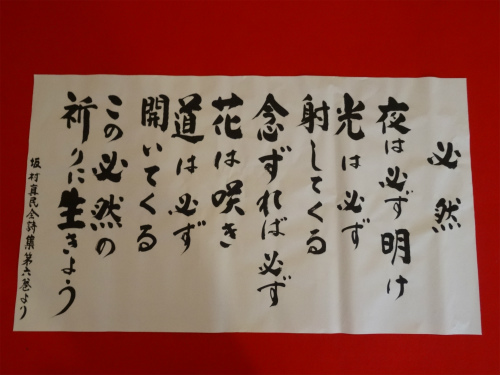 必然
夜は必ず明け
光は必ず
射してくる
念ずれば必ず
花は咲き
道は必ず
開いてくる
この必然の
祈りに生きよう
坂村真民全詩集第六巻より